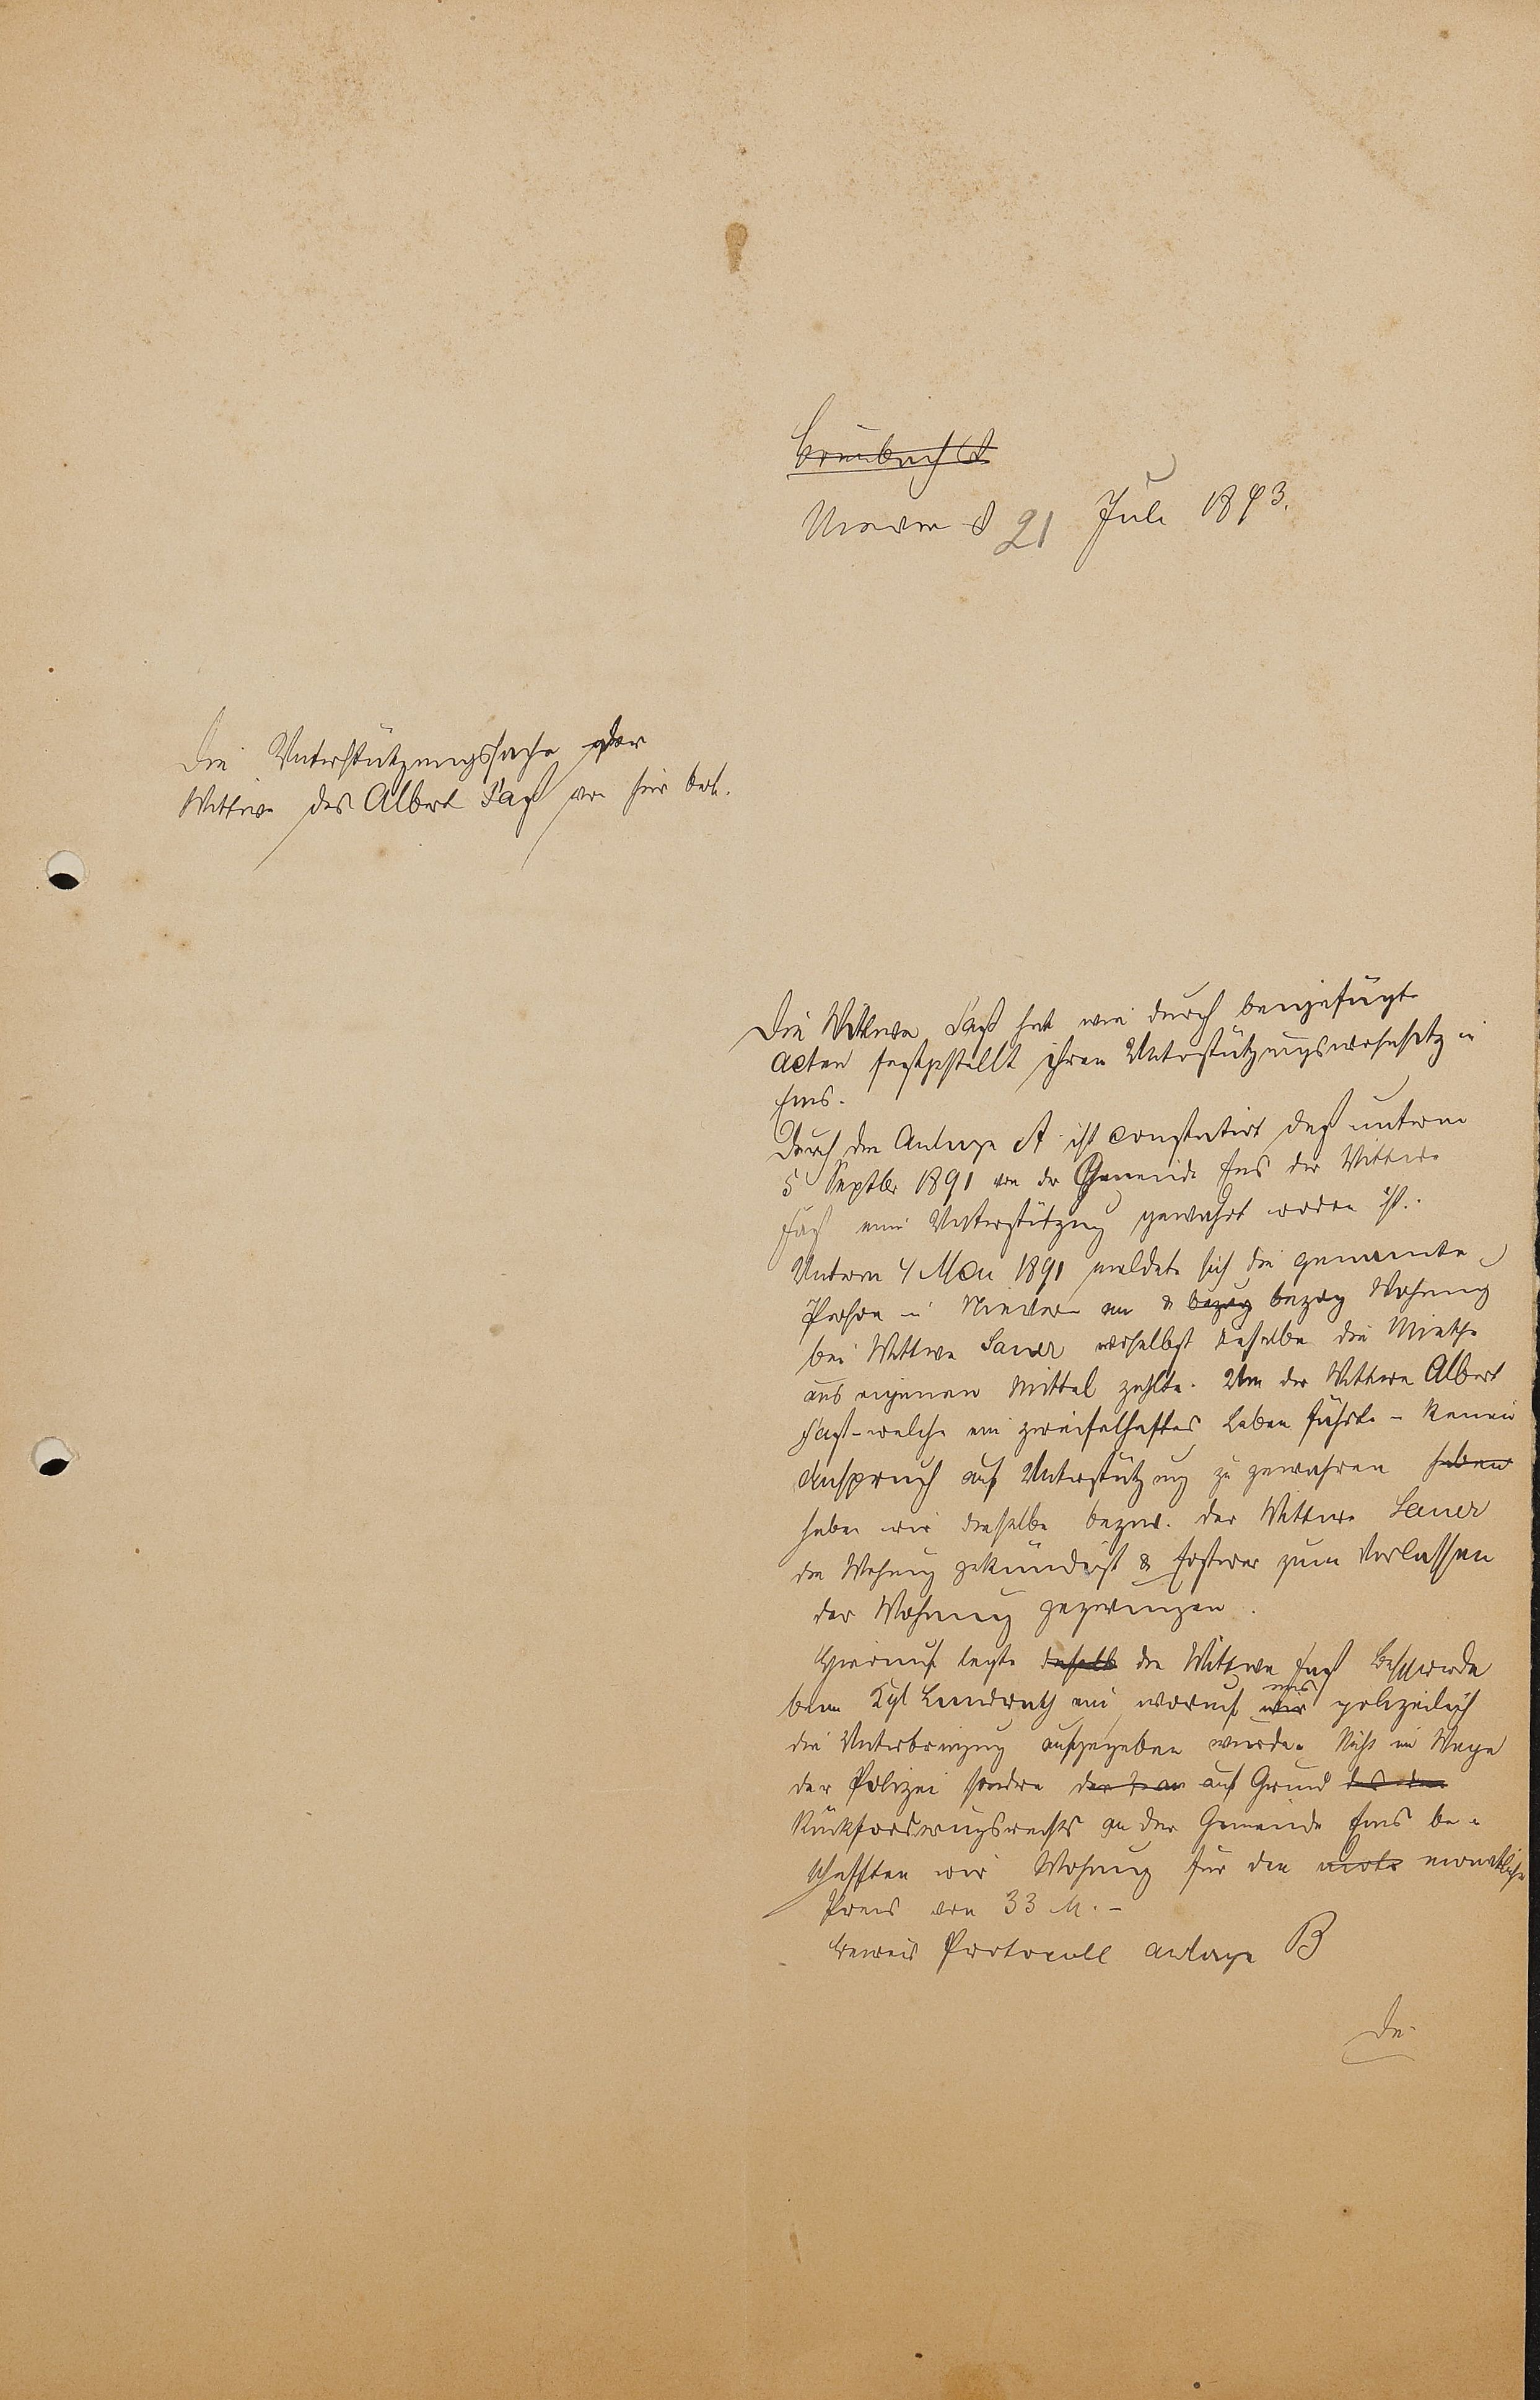 Nievern d 21 Juli 1893.
Die Unterstützungssache der
Wittwe des Albert Faß von hier betr.
Die Wittwe Faß hat wie durch beigefügte
Acten festgestellt ihren Unterstützungswohnsitz in
Ems.
Durch die Anlage A ist constatirt daß unterm
5 Septbr 1891 von der Gemeinde Ems der Wittwe
Faß eine Unterstützung gewährt worden ist.
Unterm 4 Mai 1891 meldete sich die genannte
Person in Nievern an & bezog bezog Wohnung
bei Wittwe Sauer woselbst dieselbe die Miethe
aus eigenen Mittel zahlte. Um der Wittwe Albert
Faß - welche ein zweifelhaftes Leben führte - keinen
Anspruch auf Unterstützung zu gewähren haben
haben wir dieselbe bezw. der Wittwe Sauer
die Wohnung gekündigt & Erstere zum Verlassen
der Wohnung gezwungen.
Hierauf legte dieselb die Wittwe Faß Beschwerde
beim Kgl Landrath ein worauf wir uns polizeilich
die Unterbringung aufgegeben wurde. Nicht im Wege
der Polizei sondern auf Grund des
Rückforderungsrechts an der Gemeinde Ems be-
schafften wir Wohnung für den monatlichen
Preis von 33 M. -
Beweis Protocoll Anlage B
Die